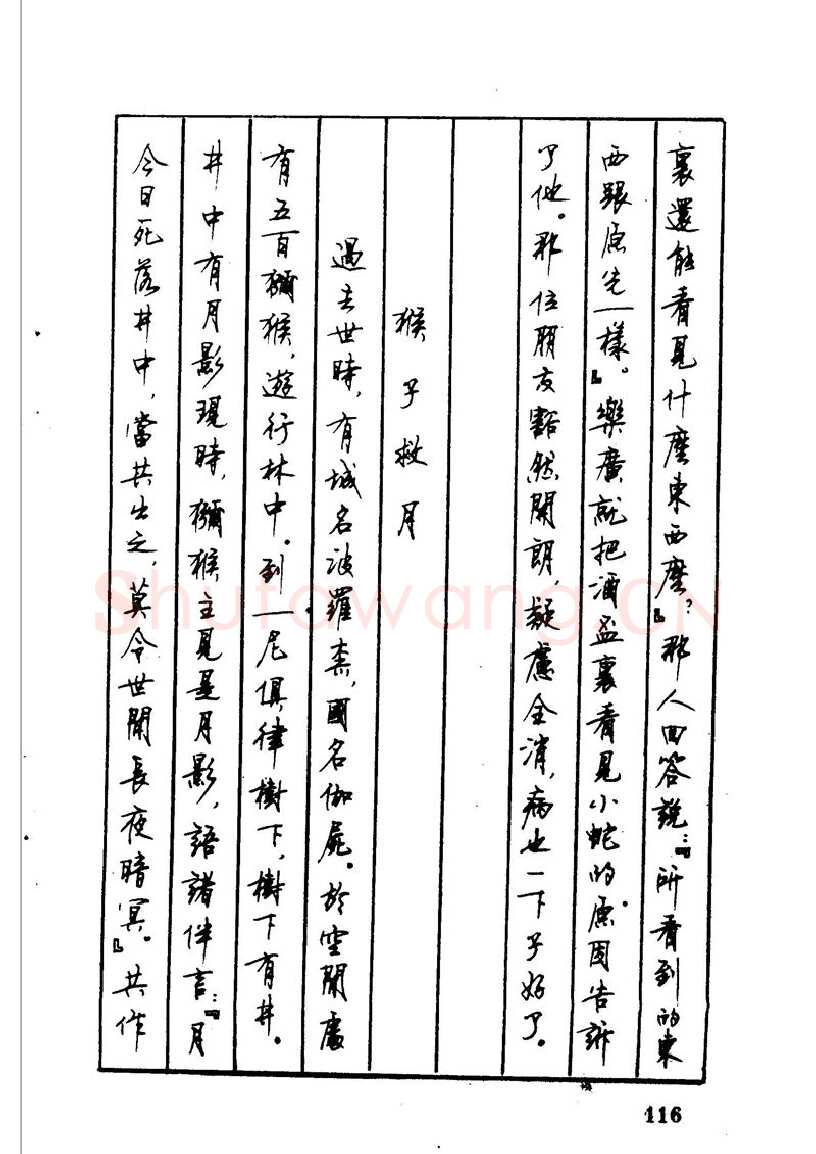 裏還能看見什麼東西麼？』那人回答說：『所看到的東
西跟原先一樣。』樂廣就把酒盃裏看見小蛇的原因告訴
了他。那位朋友豁然開朗，疑慮全消，病也一下子好了。
猴子救月
過去世時，有城名波羅柰，國名伽屍。於空閑處
有五百獼猴，遊行林中。到一尼俱律樹下，樹下有井。
井中有月影現時，獼猴主見是月影，語諸伴言：『月
今日死落井中，當共出之，莫令世間長夜暗冥。』共作
116
Shufawang.CN